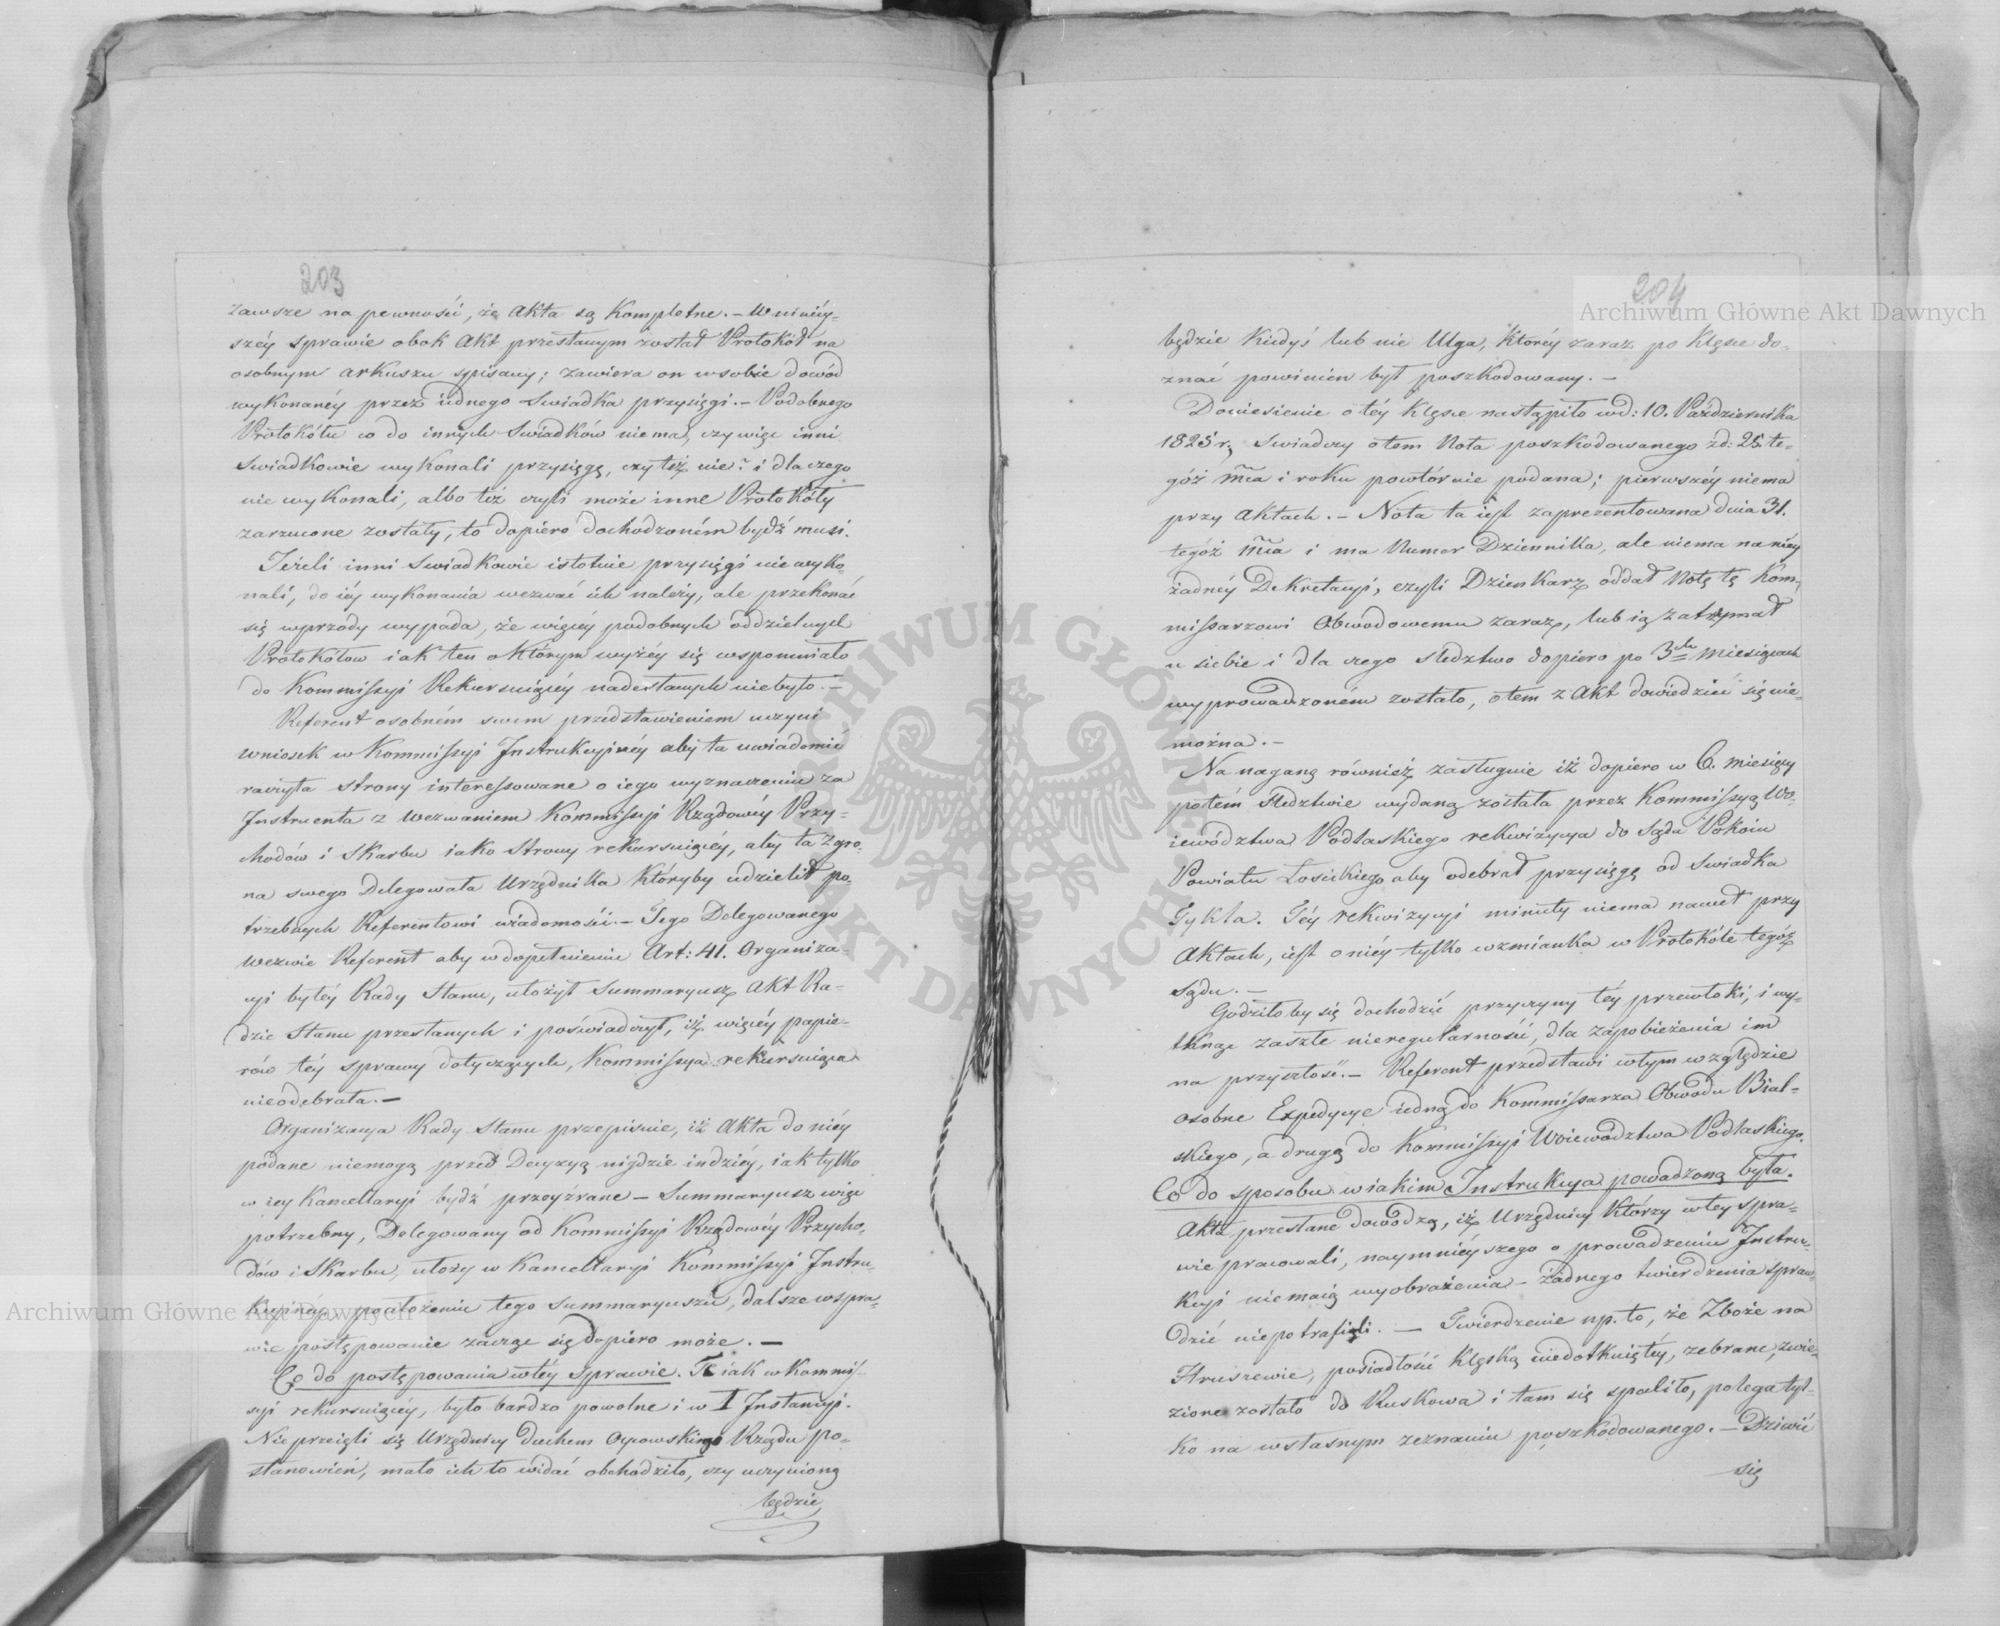 203
zawsze na pewność, że Akta są Kompletne. – W niniéy-
széy sprawie obok Akt przesłanym został Protokół na
osobnym arkuszu spisany; zawiera on w sobie dowód
wykonanéy przez iednego Swiadka przysięgi. – Podobnego
Protokółu co do innych Swiadków niema, czy więc inni
Swiadkowie wykonali przysięgę, czy téż nie? i dla czego
nie wykonali, albo téż czyli może inne Protokóły
zarzucone zostały, to dopiéro dochodzoném bydź musi.
Jeżeli inni Swiadkowie istotnie przysięgi nie wyko-
nali, do iéy wykonania wezwać ich należy, ale przekonać
się wprzódy wypada, że więcéy podobnych oddzielnych
Protokółow iak ten o którym wyżéy się wspomniało
do Kommissyi Rekursuiącéy nadesłanych niebyło. –
Referent osobném swem przedstawieniem uczyni
wniosek w Kommissyi Instrukcyinéy aby ta uwiadomić
raczyła strony interessowane o iego wyznaczeniu za
Instruenta z wezwaniem Kommissyi Rządowéy Przy-
chodów i Skarbu iako Strony rekursuiącéy, aby ta z gro-
na swego Delegowała Urzędnika któryby udzielił po-
trzebnych Referentowi wiadomości. – Tego Delegowanego
wezwie Referent aby w dopełnieniu Art: 41. Organiza-
cyi byłéy Rady Stanu, ułożył Summaryusz Akt Ra-
dzie Stanu przesłanych i poświadczył, iż więcéy papie-
rów téy sprawy dotyczących, Kommissya rekursuiąca
nieodebrała. –
Organizacya Rady Stanu przepisuie, iż Akta do niéy
podane niemogą przed Decyzyą nigdzie indziéy, iak tylko
w iey Kancellaryi bydź przeyźrane – Summaryusz więc
potrzebny, Delegowany od Kommissyi Rządowéy Przycho-
dów i Skarbu, ułoży w Kancellaryi Kommissyi Instru-
kcyinéy, po ułożeniu tego Summaryuszu, dalsze w spra-
wie postępowanie zacząć się dopiéro może. –
Co do postępowania w téy Sprawie. Te iak w Kommis-
syi rekursuiącéy, było bardzo powolne i w I Instancyi.
Nie przeięli się Urzędnicy duchem Oycowskiego Rządu po-
stanowień, mało ich to widać obchodziło, czy uczynioną
będzie
204
będzie kiedyś lub nie Ulga, któréy zaraz po klęsce do-
znać powinien był poszkodowany. –
Doniesienie o téy klęsce nastąpiło w d: 10. Października
1825 r, Swiadczy o tem Nota poszkodowanego z d: 25. te-
góż mca i roku powtórnie podana; pierwszéy niema
przy Aktach. – Nota ta iest zaprezentowana dnia 31.
tegóż mca i ma Numer Dziennika, ale niema na niéy
żadnéy Dekretacyi, czyli Dzienkarz oddał Notę tę Kom-
missarzowi Obwodowemu zaraz, lub ią zatrzymał
u siebie i dla czego sledztwo dopiero po 3ch Miesiącach
wyprowadzoném zostało, o tem z Akt dowiedzieć się nie-
można. –
Na naganę również zasługuie iż dopiero w 6. Miesięcy
potém sledztwie wydaną została przez Kommissyą Wo-
iewództwa Podlaskiego rekwizycya do Sądu Pokoiu
Powiatu Łosickiego aby odebrał przysięgę od Swiadka
Gykla. Téy rekwizycyi minuty niema nawet przy
Aktach, iest o niéy tylko wzmianka w Protokóle tegóż
Sądu. –
Godziłoby się dochodzić przyczyny téy przewłoki, i wy-
tknąć zaszłe nieregularności, dla zapobieżenia im
na przyszłość. – Referent przedstawi w tym względzie
osobne Expedycye iedną do Kommissarza Obwodu Bial-
skiego, a drugą do Kommissyi Woiewództwa Podlaskiego.
Co do sposobu w iakim Instrukcya powadzoną była.
Akta przesłane dowodzą, iż Urzędnicy którzy w tey spra-
wie pracowali, naymniéyszego o prowadzeniu Instru-
kcyi niemaią wyobrażenia – Żadnego twierdzenia spraw-
dzić niepotrafili. – Twierdzenie np. to, że Zboże na
Hruszewie, posiadłości klęską niedotkniętéy, zebrane, zwie-
zione zostało do Ruskowa i tam się spaliło, polega tyl-
ko na własnym zeznaniu poszkodowanego. – Dziwić
się
Archiwum Główne Akt Dawnych
Archiwum Główne Akt Dawnych
ARCHIWUM GŁÓWNE AKT DAWNYCH